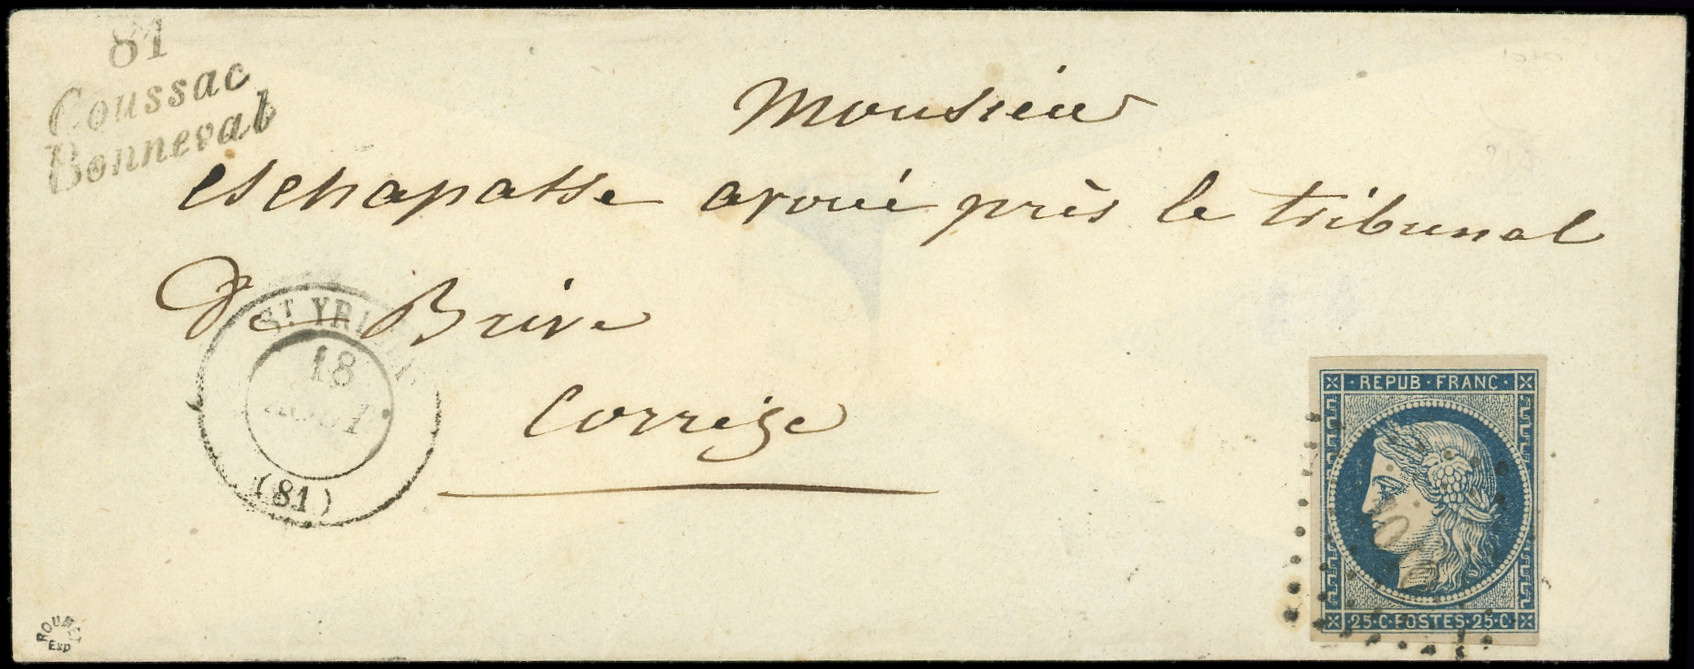 81
Coussac
Bonneval
Monsieur
eschapasse avoué près le tribunal
de Brive
Corrèze
ST YRIEIX
18
AOUT
(81)
REPUB·FRANC·
25·C·POSTES·25·C·
ROUMET
Exp